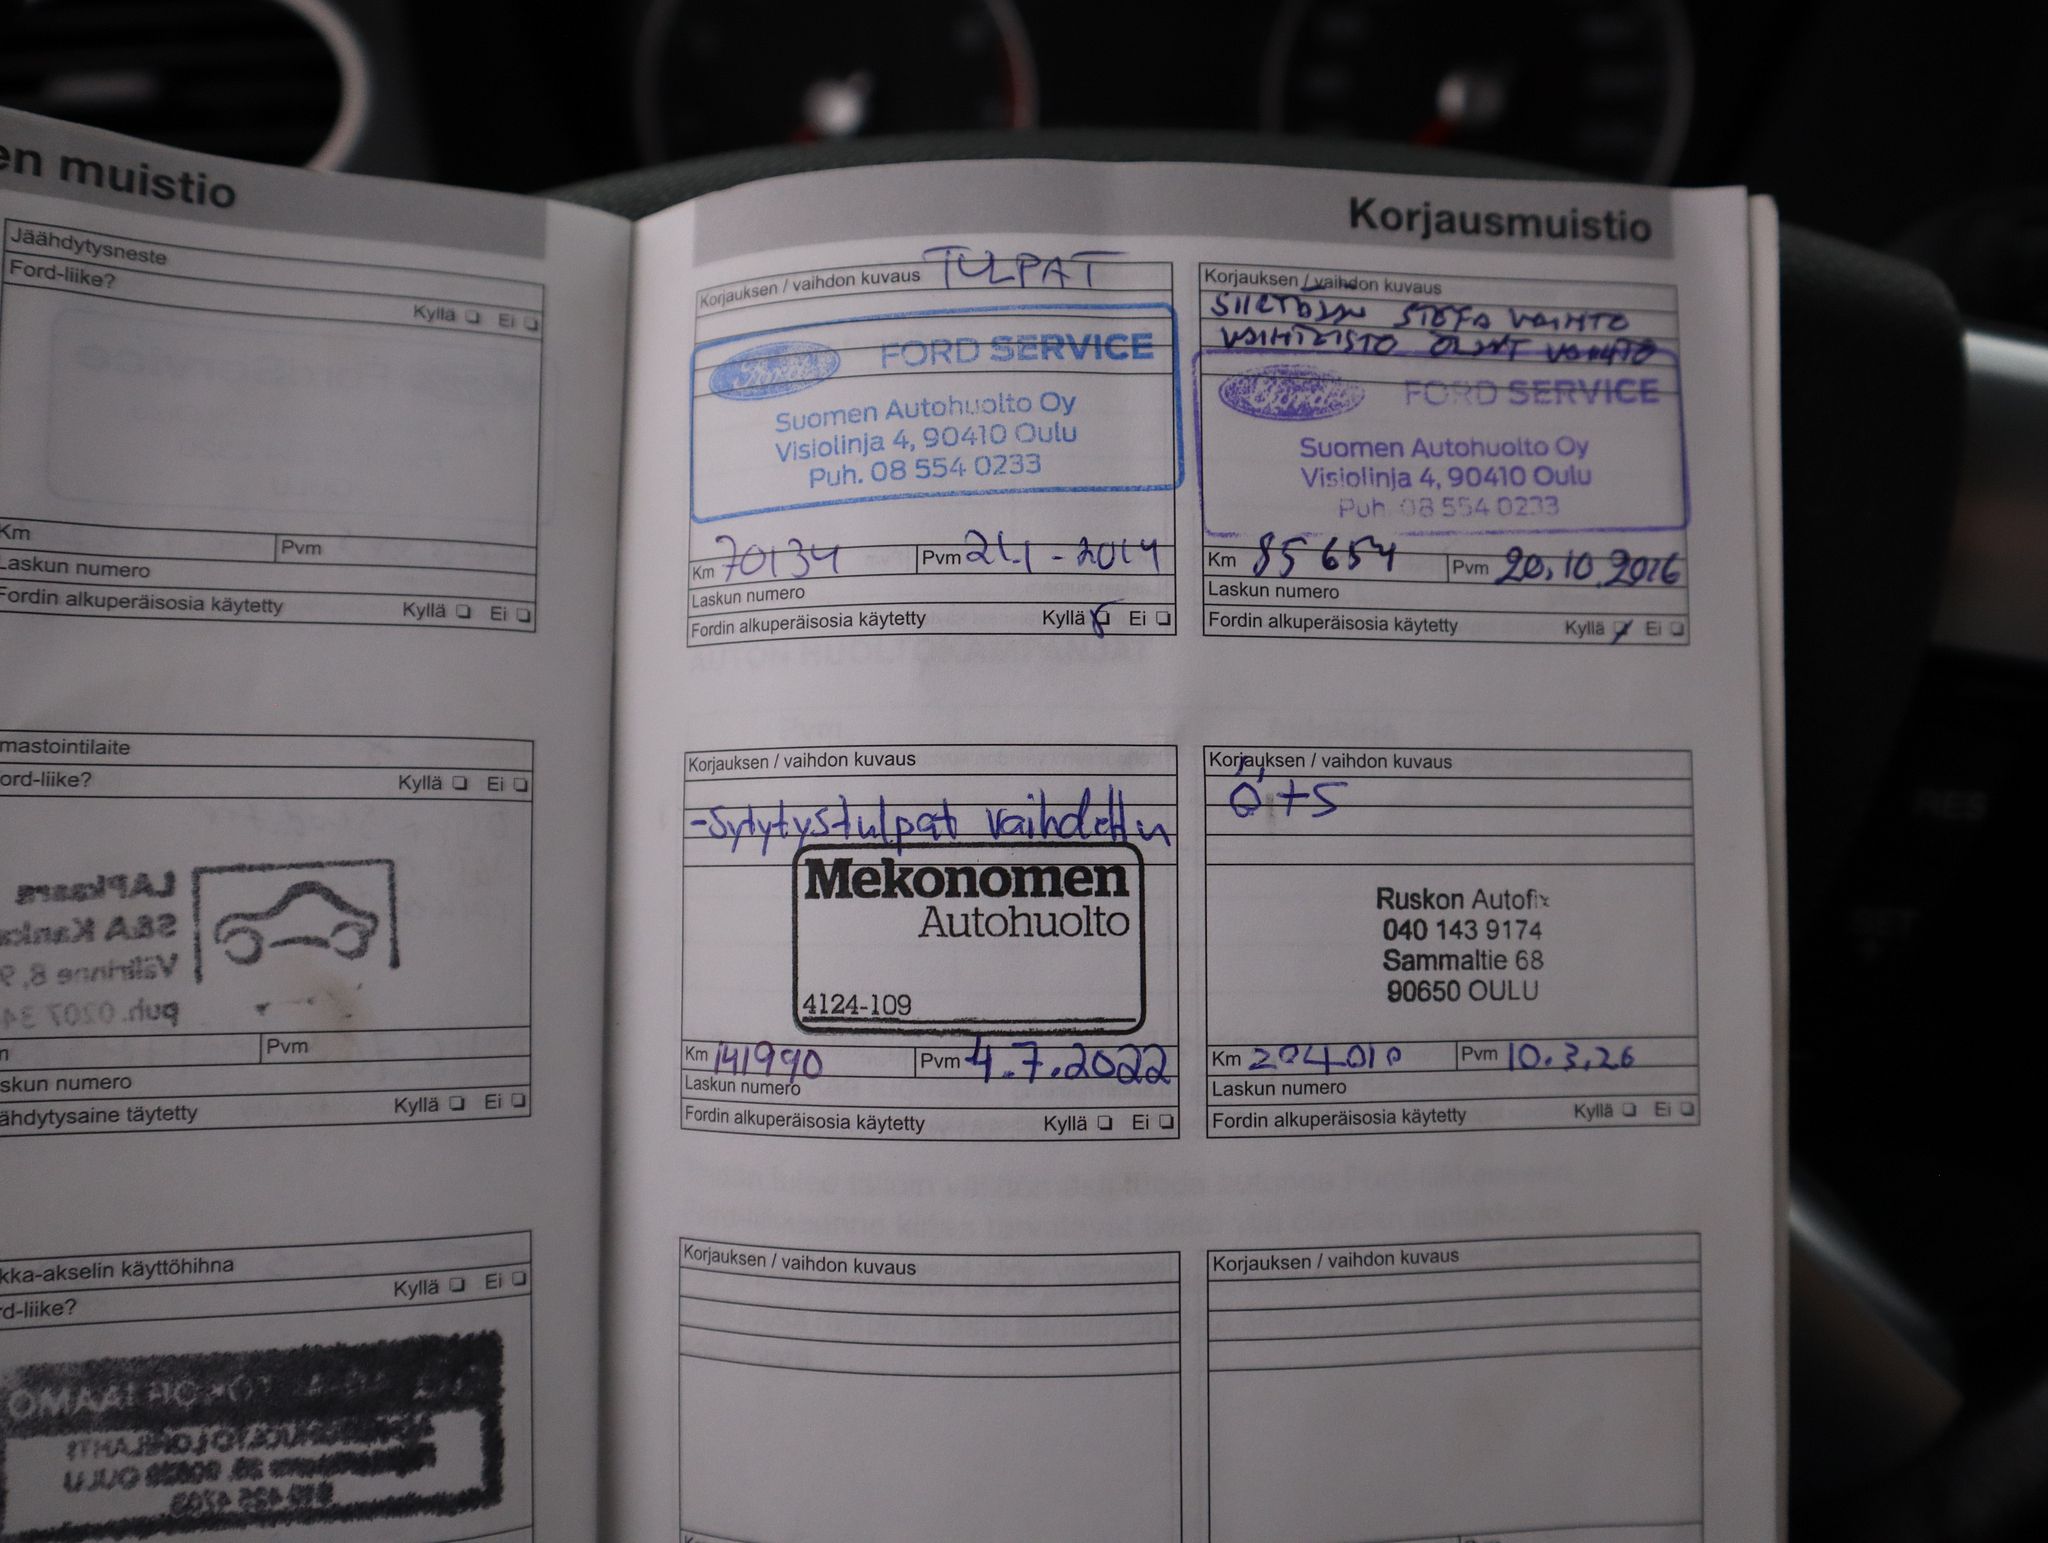 en muistio
Jäähdytysneste
Ford-liike?
Kyllä Ei
Km Pvm
Laskun numero
Fordin alkuperäisosia käytetty Kyllä Ei
mastointilaite
ord-liike? Kyllä Ei
LAPkaars
S&A Kanka
Välirinne 8, 9
puh. 0207 34
Pvm
skun numero
ähdytysaine täytetty Kyllä Ei
kka-akselin käyttöhihna
rd-liike? Kyllä Ei
OULU
Korjausmuistio
Korjauksen / vaihdon kuvaus TULPAT
Ford FORD SERVICE
Suomen Autohuolto Oy
Visiolinja 4, 90410 Oulu
Puh. 08 554 0233
Km 70134 Pvm 21.1-2014
Laskun numero
Fordin alkuperäisosia käytetty Kyllä Ei
Korjauksen / vaihdon kuvaus
VAIHTO
VAIHTEISTO VAIHTO
Ford FORD SERVICE
Suomen Autohuolto Oy
Visiolinja 4, 90410 Oulu
Puh. 08 554 0233
Km 85654 Pvm 20.10.2016
Laskun numero
Fordin alkuperäisosia käytetty Kyllä Ei
Korjauksen / vaihdon kuvaus
-Sytytystulpat vaihdettu
Mekonomen
Autohuolto
4124-109
Km 141990 Pvm 4.7.2022
Laskun numero
Fordin alkuperäisosia käytetty Kyllä Ei
Korjauksen / vaihdon kuvaus
Ö+S
Ruskon Autofix
040 143 9174
Sammaltie 68
90650 OULU
Km 204010 Pvm 10.3.26
Laskun numero
Fordin alkuperäisosia käytetty Kyllä Ei
Korjauksen / vaihdon kuvaus
Korjauksen / vaihdon kuvaus
RES
SET